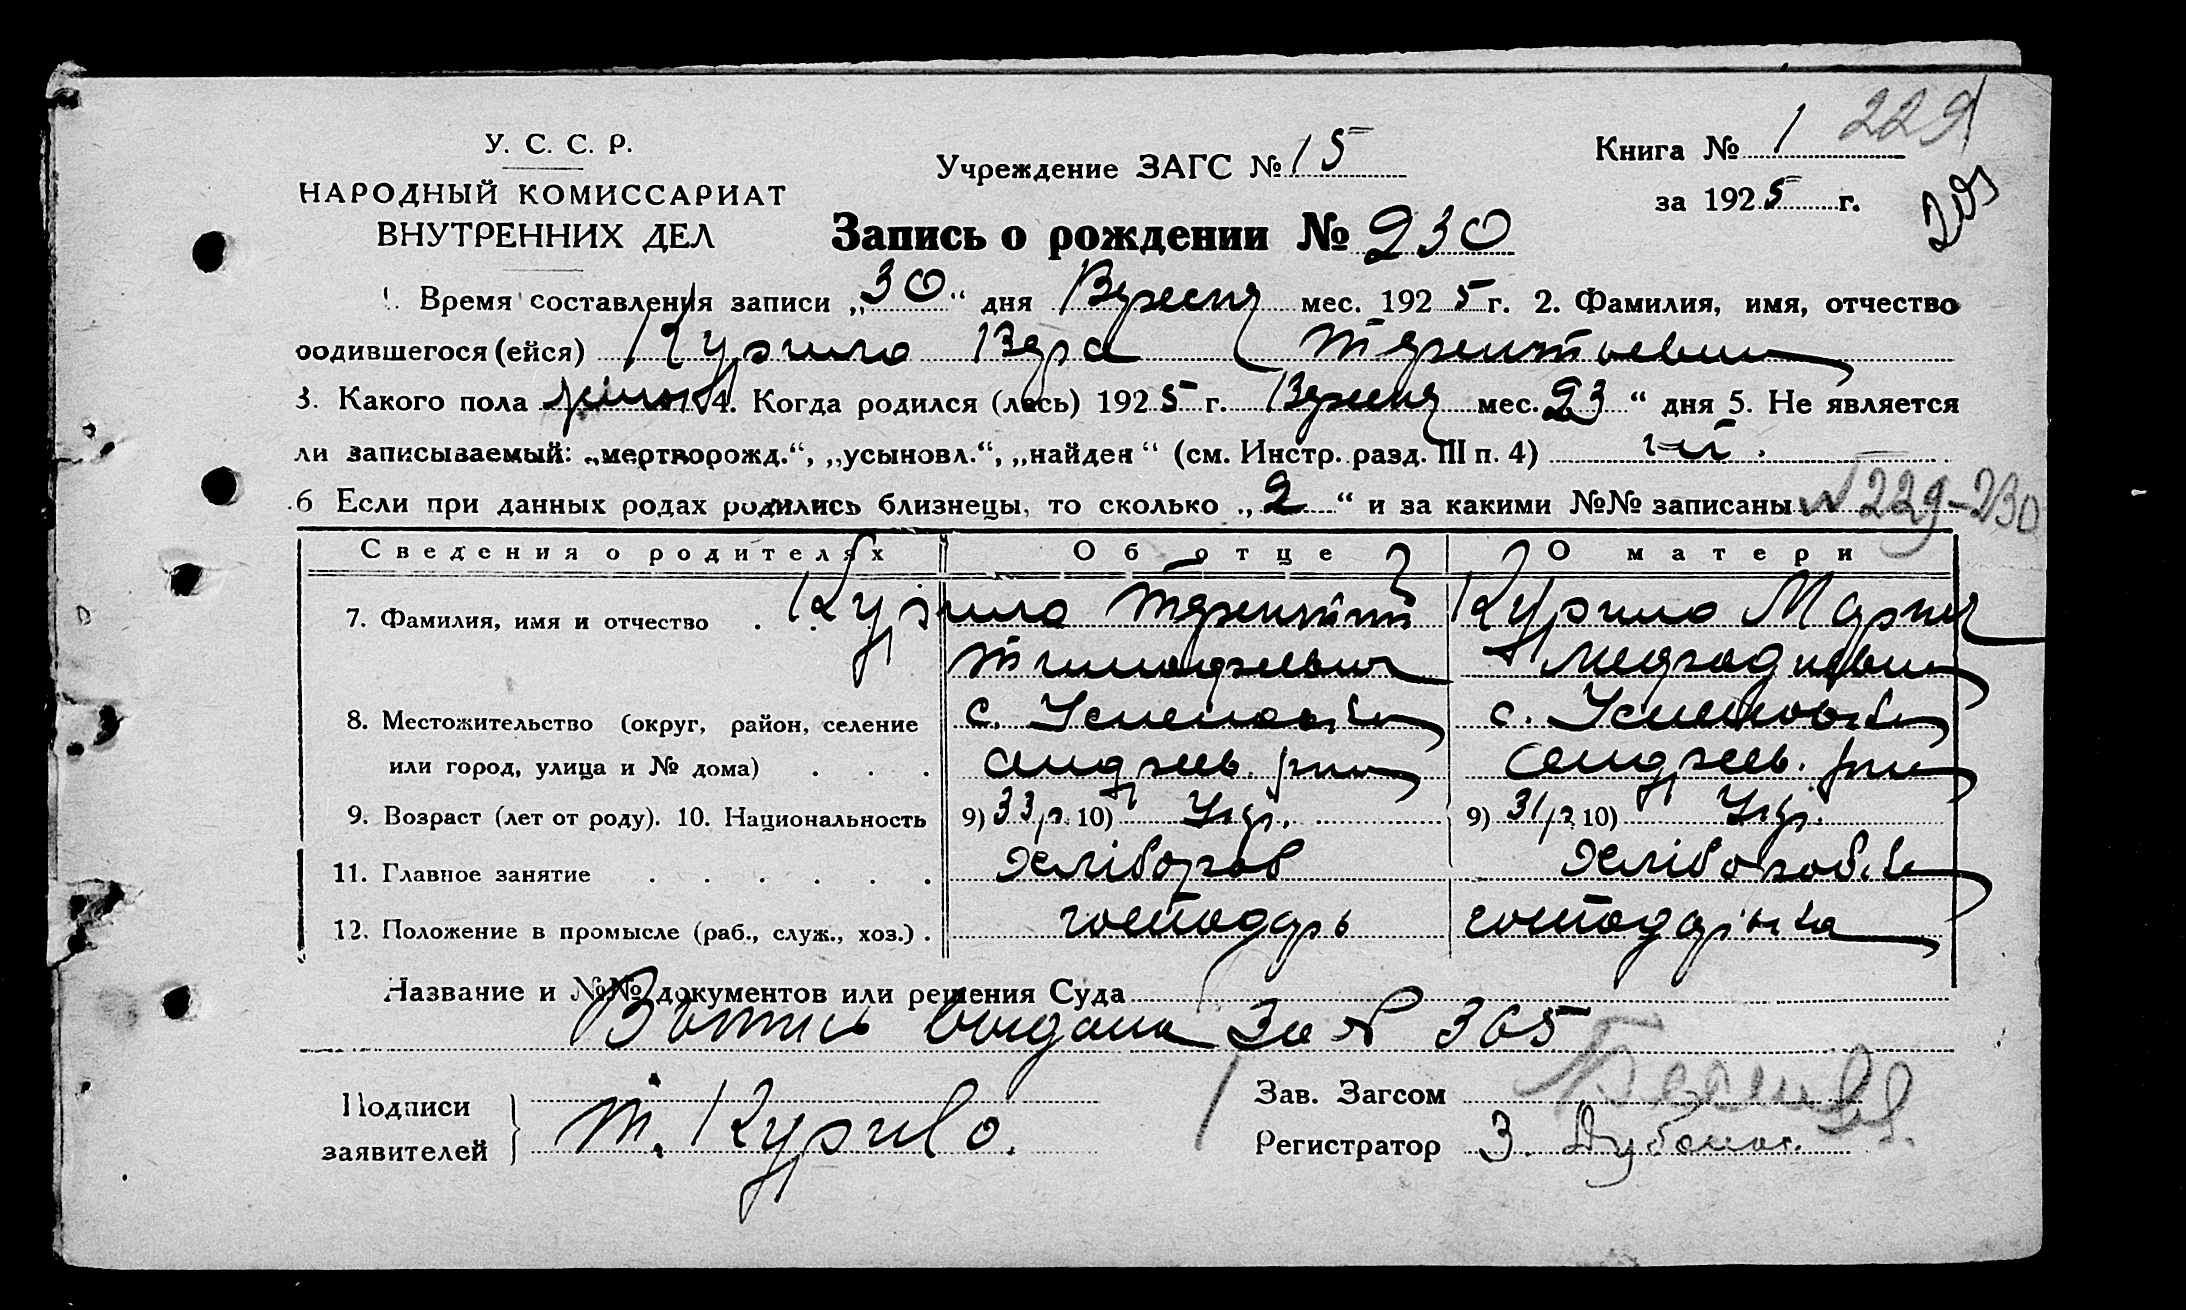 У. С. С. Р.
НАРОДНЫЙ КОМИССАРИАТ
ВНУТРЕННИХ ДЕЛ
Учреждение ЗАГС № 15
Книга № 1 229
за 1925 г.
Запись о рождении № 230
1. Время составления записи „30“ дня Вересня мес. 1925 г. 2. Фамилия, имя, отчество
родившегося (ейся) Курило Вера Терентьевна
3. Какого пола жіноч 4. Когда родился (лась) 1925 г. Вересня мес. 23 “ дня 5. Не является
ли записываемый: „мертворожд.“, „усыновл.“, „найден“ (см. Инстр. разд. III п. 4) ні.
6 Если при данных родах родились близнецы, то сколько „2“ и за какими №№ записаны №229-230
Сведения о родителях Об отце О матери
7. Фамилия, имя и отчество . Курило Терентий Курило Мария
Тимофеевич
8. Местожительство (округ, район, селение с. Успеновка с. Успеновка
или город, улица и № дома) . . . Андреев. рну Андреев. рну
9. Возраст (лет от роду). 10. Национальность 9) 33 р. 10) Укр. 9) 31 р. 10) Укр.
11. Главное занятие . . . . . . Хлібороб Хліборобка
12. Положение в промысле (раб., служ., хоз.) . господарь господарька
Название и №№ документов или решения Суда
выдана За № 365
Подписи
заявителей
Т. Курило.
Зав. Загсом
Регистратор З.